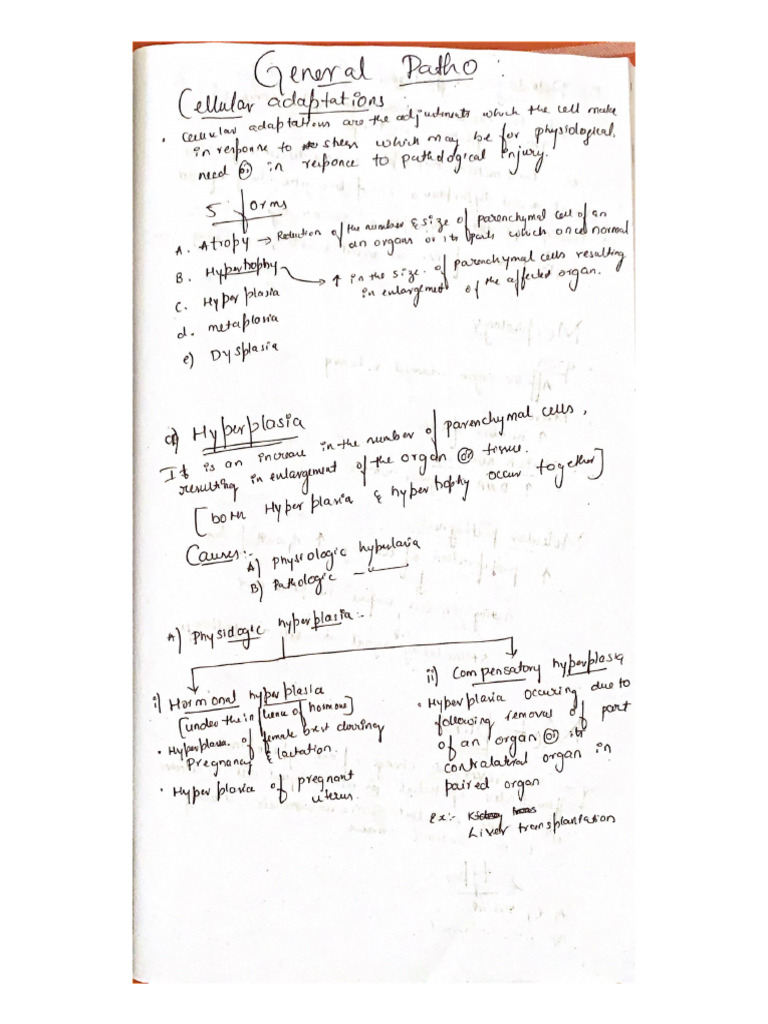 General Patho :
Cellular adaptations :
• Cellular adaptations are the adjustments which the cell make
in response to stress which may be for physiological
need (or) in responce to pathological injury.
5 forms
A. Atropy → Reduction of the number & size of parenchymal cell of an
an organs or its parts which once normal
B. Hypertrophy → ↑ in the size of parenchymal cells resulting
in enlargement of the affected organ.
C. Hyperplasia
d. metaplasia
e) Dysplasia
Hyperplasia
It is an increase in the number of parenchymal cells,
resulting in enlargement of the organ (or) tissue.
[both Hyperplasia & hypertophy occur together]
Causes:-
A) Physiologic
B) Pathologic
A) Physiologic hyperplasia:-
i) Hormonal hyperplasia
[under the influence of hormone]
• Hyperplasia of female brest
Pregnancy & lactation.
• Hyperplasia of pregnant
uterus.
ii) Compensatory hyperplasia
• Hyperplasia occuring due to
following removal of part
of an organ (or) its
contralatral organ in
paired organ
Ex:-
Liver transplantation